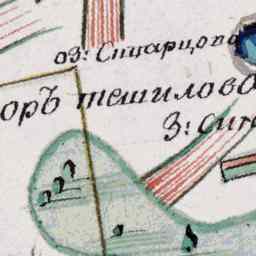 оз: Ситарцова
оръ тешилова
З: Сита